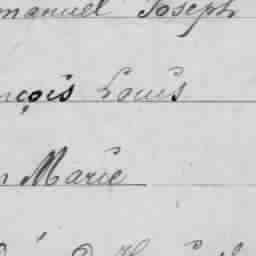 manuel Joseph
nçois Louis
n Marie